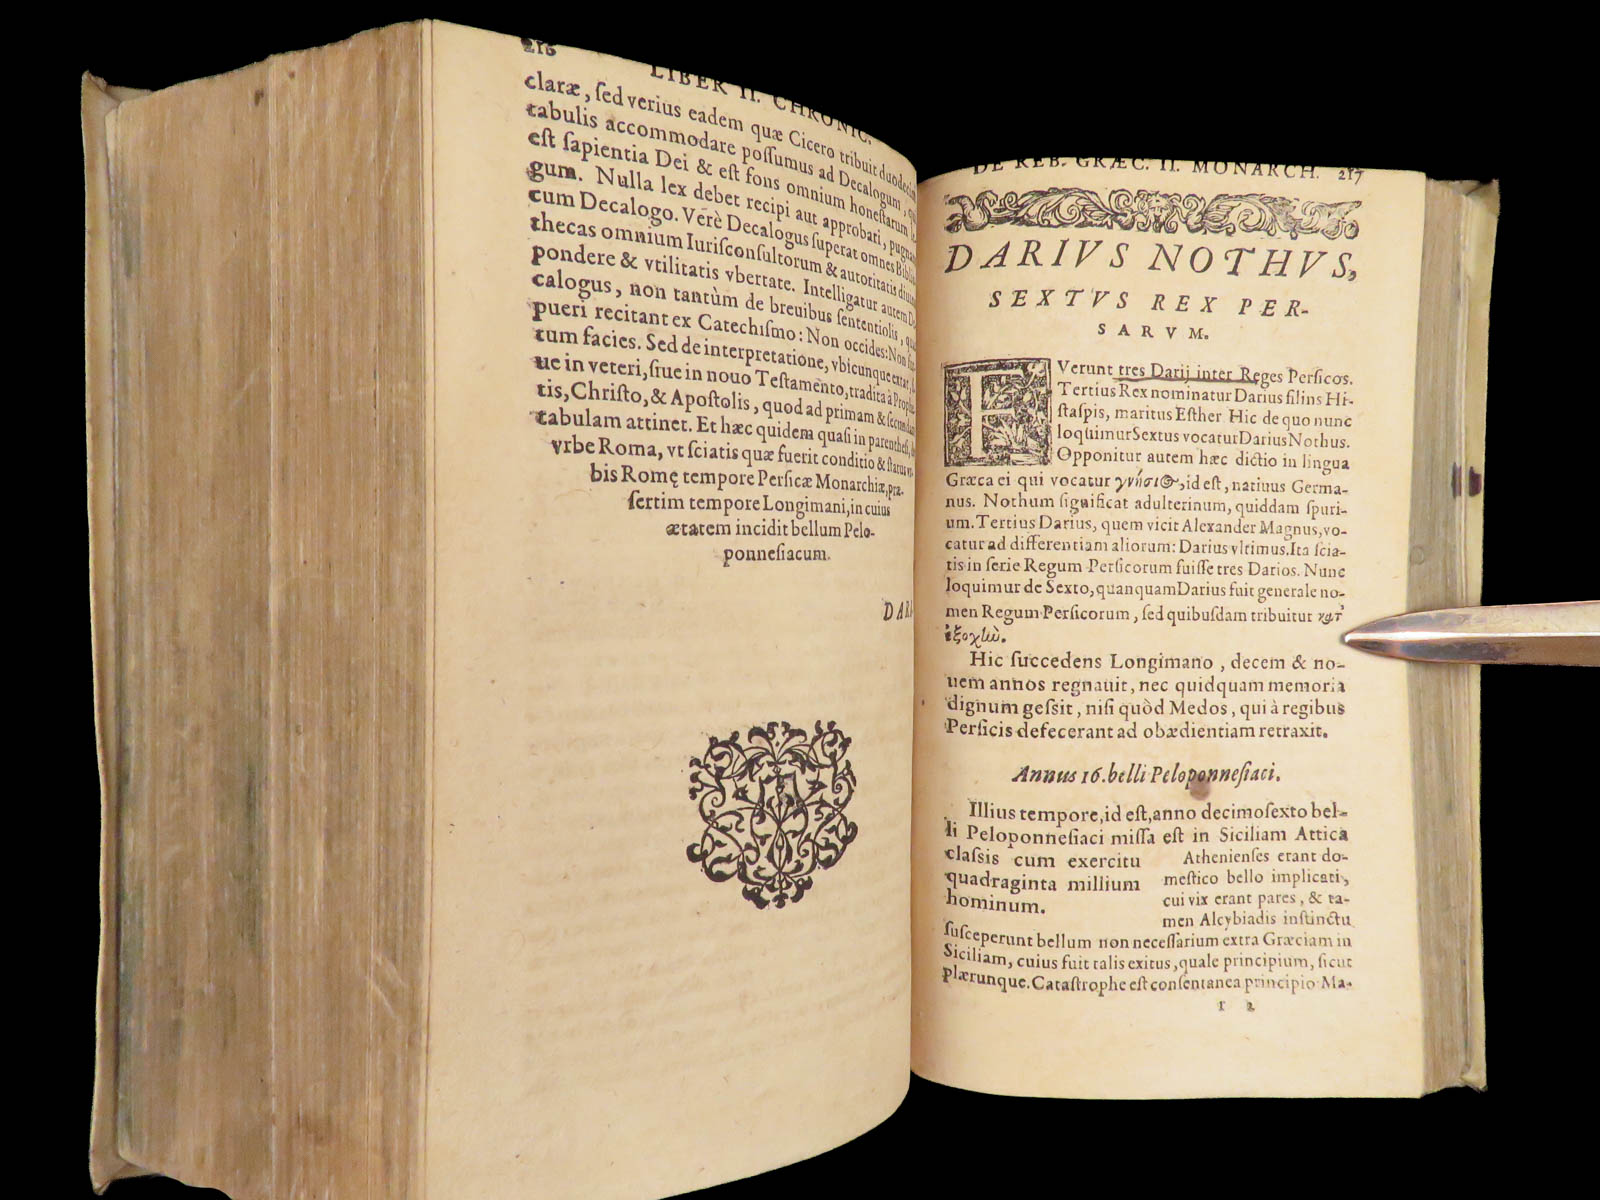 216
LIBER II. CHRONIC.
claræ, ſed verius eadem quæ Cicero tribuit duodecim
tabulis accommodare poſſumus ad Decalogum, qui
eſt ſapientia Dei & eſt fons omnium honeſtarum le-
gum. Nulla lex debet recipi aut approbari, pugnans
cum Decalogo. Verè Decalogus ſuperat omnes Biblio-
thecas omnium Iuriſconſultorum & autoritatis diuinæ
pondere & vtilitatis vbertate. Intelligatur autem De-
calogus, non tantùm de breuibus ſententiolis, quas
pueri recitant ex Catechiſmo: Non occides: Non fur-
tum facies. Sed de interpretatione, vbicunque extat,
ue in veteri, ſiue in nouo Teſtamento, tradita à Prophe-
tis, Chriſto, & Apoſtolis, quod ad primam & ſecundam
tabulam attinet. Et hæc quidem quaſi in parentheſi, de
vrbe Roma, vt ſciatis quæ fuerit conditio & ſtatus vr-
bis Romę tempore Perſicæ Monarchiæ, præ-
ſertim tempore Longimani, in cuius
ætatem incidit bellum Pelo-
ponneſiacum.
DARI-
DE REB. GRÆC. II. MONARCH. 217
DARIVS NOTHVS,
SEXTVS REX PER-
SARVM.
FVerunt tres Darij inter Reges Perſicos.
Tertius Rex nominatur Darius filius Hi-
ſtaſpis, maritus Eſther Hic de quo nunc
loquimur Sextus vocatur Darius Nothus.
Opponitur autem hæc dictio in lingua
Græca ei qui vocatur γνήσιος, id eſt, natiuus Germa-
nus. Nothum ſignificat adulterinum, quiddam ſpuri-
um. Tertius Darius, quem vicit Alexander Magnus, vo-
catur ad differentiam aliorum: Darius vltimus. Ita ſcia-
tis in ſerie Regum Perſicorum fuiſſe tres Darios. Nunc
loquimur de Sexto, quanquam Darius fuit generale no-
men Regum Perſicorum, ſed quibuſdam tribuitur κατ'
ἐξοχὴν.
Hic ſuccedens Longimano, decem & no-
uem annos regnauit, nec quidquam memoria
dignum geſsit, niſi quòd Medos, qui à regibus
Perſicis defecerant ad obædientiam retraxit.
Annus 16. belli Peloponneſiaci.
Illius tempore, id eſt, anno decimoſexto bel-
li Peloponneſiaci miſſa eſt in Siciliam Attica
claſsis cum exercitu
quadraginta millium
hominum.
Athenienſes erant do-
meſtico bello implicati,
cui vix erant pares, & ta-
men Alcybiadis inſtinctu
ſuſceperunt bellum non neceſſarium extra Græciam in
Siciliam, cuius fuit talis exitus, quale principium, ſicut
plærunque. Cataſtrophe eſt conſentanea principio Ma-
I 2